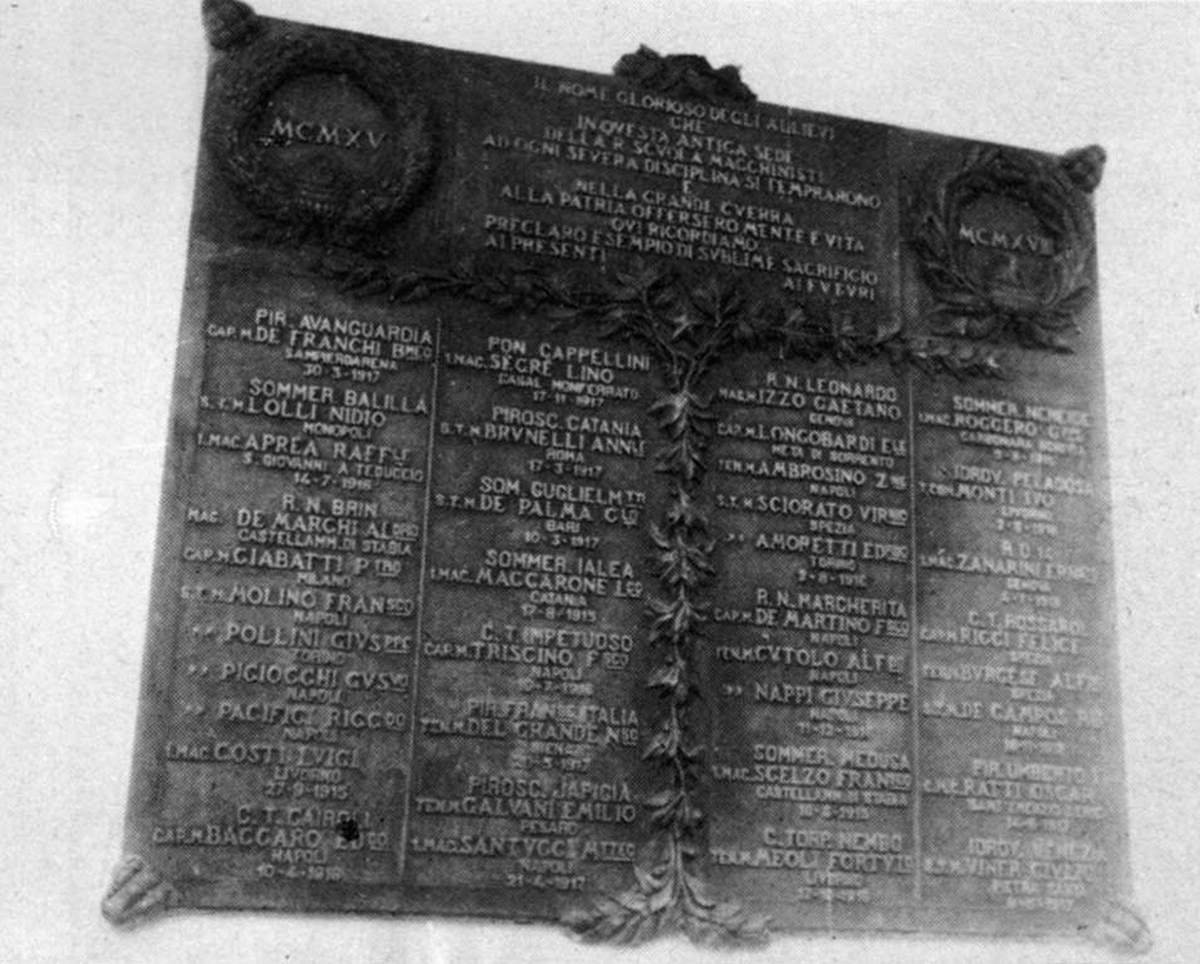 MCMXV
IL NOME GLORIOSO DEGLI ALLIEVI
CHE
IN QVESTA ANTICA SEDE
DELLA R. SCVOLA MACCHINISTI
AD OGNI SEVERA DISCIPLINA SI TEMPRARONO
E
NELLA GRANDE GVERRA
ALLA PATRIA OFFERSERO MENTE E VITA
QVI RICORDIAMO
PRECLARO ESEMPIO DI SVBLIME SACRIFICIO
AI PRESENTI
AI FVTVRI
MCMXVIII
PIR. AVANGUARDIA
CAP. M. DE FRANCHI B.MEO
SAMPIERDARENA
30-3-1917
SOMMER. BALILLA
S.T.M. LOLLI NIDIO
MONOPOLI
1.MAC. APREA RAFF.LE
S. GIOVANNI A TEDUCCIO
14-7-1916
R. N. BRIN
MAC. DE MARCHI AL.DRO
CASTELLAMM. DI STABIA
CAP. M. CIABATTI P.TRO
MILANO
S.T.M. MOLINO FRAN.SCO
NAPOLI
" POLLINI GIVS.PPE
TORINO
" PICIOCCHI GVS.VO
NAPOLI
" PACIFICI RICC.DO
NAPOLI
1.MAC. COSTI LVIGI
LIVORNO
27-9-1915
C. T. CAIROLI
CAP. M. BACCARO ED.DO
NAPOLI
10-4-1918
PON. CAPPELLINI
1.MAC. SEGRÈ LINO
CASAL MONFERRATO
17-11-1917
PIROSC. CATANIA
S.T.M. BRVNELLI ANN.LE
ROMA
17-3-1917
SOM. GUGLIELM.TTI
S.T.M. DE PALMA G.
BARI
10-3-1917
SOMMER. IALEA
1.MAC. MACCARONE I.
CATANIA
17-8-1915
C. T. IMPETUOSO
CAP. M. TRISCINO F.SCO
NAPOLI
10-7-1916
PIR. FRANC. ITALIA
TEN. M. DEL GRANDE N.
PIROSC. JAPIGIA
TEN. M. GALVANI EMILIO
PESARO
1.MAC. SANTVCCI M.
NAPOLI
21-4-1917
R. N. LEONARDO
MAG. M. IZZO GAETANO
GENOVA
CAP. M. LONGOBARDI E.LE
META DI SORRENTO
TEN. M. AMBROSINO Z.
NAPOLI
S.T.M. SCIORATO VIR.
SPEZIA
" AMORETTI ED.
TORINO
2-8-1916
R. N. MARGHERITA
CAP. M. DE MARTINO F.SCO
NAPOLI
TEN. M. CVTOLO ALF.
NAPOLI
" NAPPI GIVSEPPE
NAPOLI
11-12-1916
SOMMER. MEDUSA
1.MAC. SCELZO FRAN.SCO
CASTELLAMM. DI STABIA
10-6-1915
C. TORP. NEMBO
TEN. M. MEOLI FORTV.
LIVORNO
SOMMER. NEREIDE
1.MAC. ROGGERO
IDROV. PELAGOSA
MONTI IVO
LIVORNO
1.MAC. ZANARINI
C. T. ROSSAROL
CAP. M. RICCI FELICE
SPEZIA
TEN. M. BVRGESE ALF.
SPEZIA
DE CAMPOS
NAPOLI
PIR. UMBERTO I
RATTI OSCAR
IDROV. VENEZIA
S.T.M. VINER